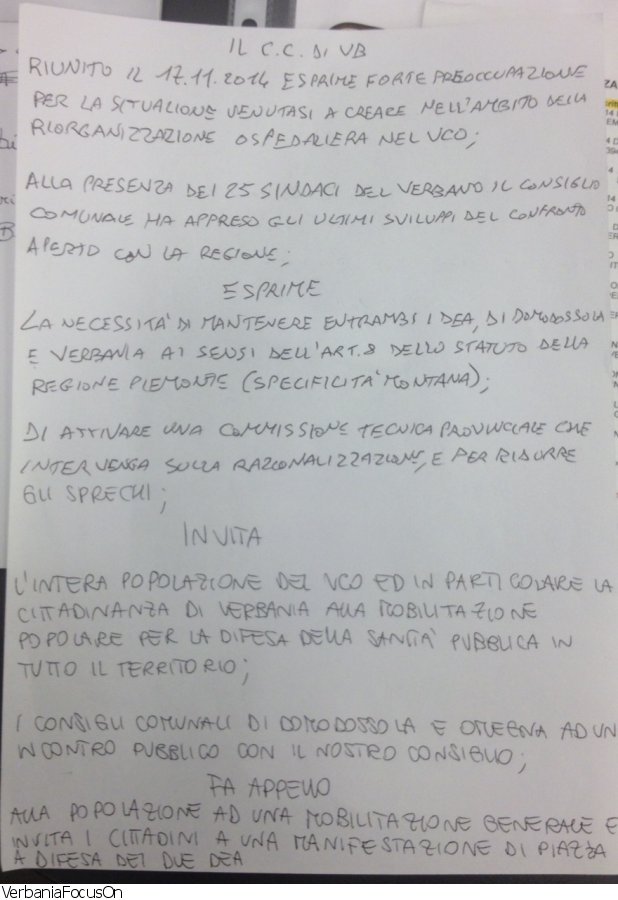 IL C.C. DI VB
RIUNITO IL 17.11.2014 ESPRIME FORTE PREOCCUPAZIONE
PER LA SITUAZIONE VENUTASI A CREARE NELL'AMBITO DELLA
RIORGANIZZAZIONE OSPEDALIERA NEL VCO;
ALLA PRESENZA DEI 25 SINDACI DEL VERBANO IL CONSIGLIO
COMUNALE HA APPRESO GLI ULTIMI SVILUPPI DEL CONFRONTO
APERTO CON LA REGIONE;
ESPRIME
LA NECESSITA' DI MANTENERE ENTRAMBI I DEA, DI DOMODOSSOLA
E VERBANIA AI SENSI DELL'ART.8 DELLO STATUTO DELLA
REGIONE PIEMONTE (SPECIFICITA' MONTANA);
DI ATTIVARE UNA COMMISSIONE TECNICA PROVINCIALE CHE
INTERVENGA SULLA RAZIONALIZZAZIONE, E PER RIDURRE
GLI SPRECHI;
INVITA
L'INTERA POPOLAZIONE DEL VCO ED IN PARTICOLARE LA
CITTADINANZA DI VERBANIA ALLA MOBILITAZIONE
POPOLARE PER LA DIFESA DELLA SANITA' PUBBLICA IN
TUTTO IL TERRITORIO;
I CONSIGLI COMUNALI DI DOMODOSSOLA E OMEGNA AD UN
INCONTRO PUBBLICO CON IL NOSTRO CONSIGLIO;
FA APPELLO
ALLA POPOLAZIONE AD UNA MOBILITAZIONE GENERALE E
INVITA I CITTADINI A UNA MANIFESTAZIONE DI PIAZZA
A DIFESA DEI DUE DEA
VerbaniaFocusOn